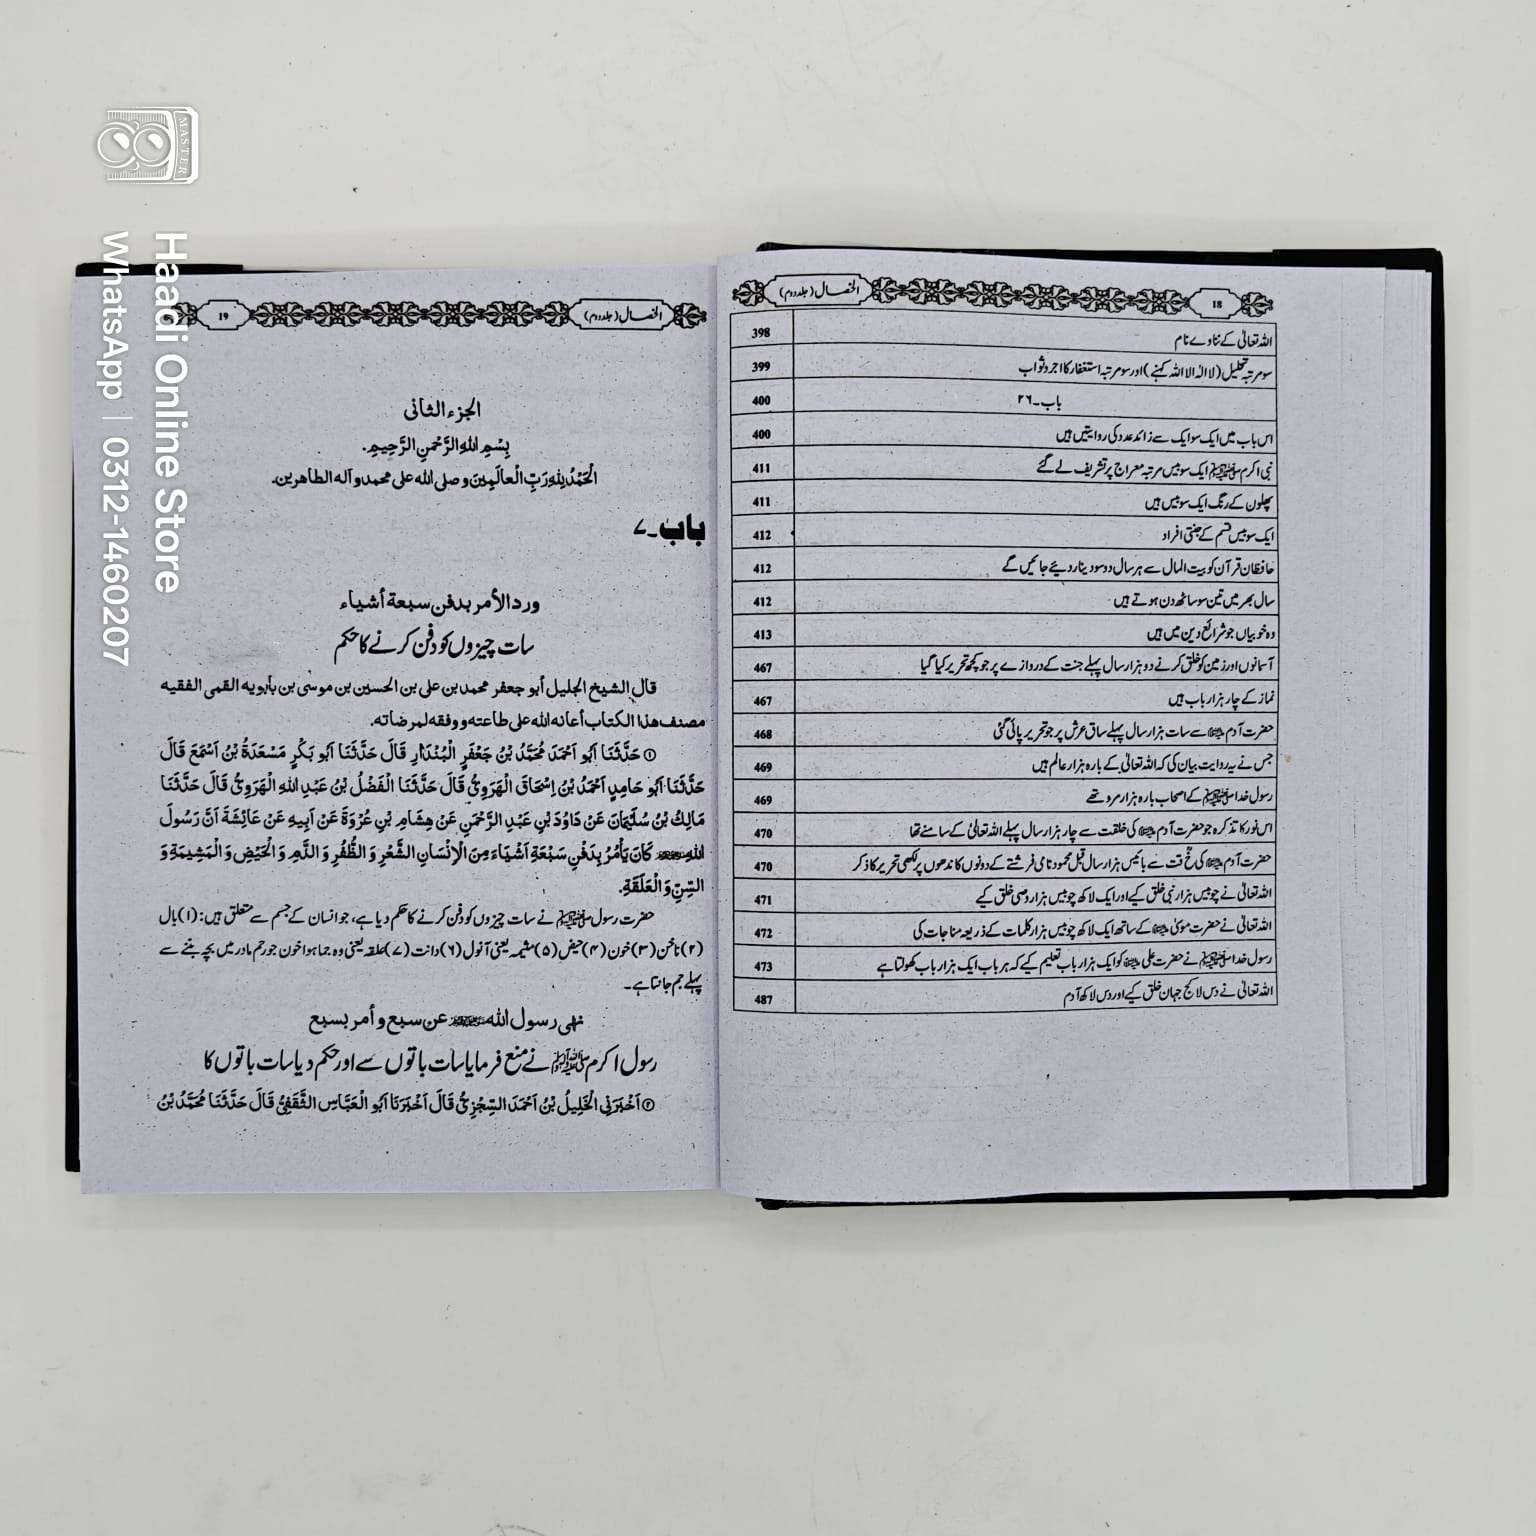 MASTER
Haadi Online Store
WhatsApp | 0312-1460207
18
الخصال (جلد دوم)
اللہ تعالیٰ کے ننانوے نام 398
سو مرتبہ تہلیل (لا الہ الا اللہ کہنے) اور سو مرتبہ استغفار کا اجر و ثواب 399
باب۔۲۶ 400
اس باب میں ایک سو ایک سے زائد عدد کی روایتیں ہیں 400
نبی اکرم ﷺ ایک سو بیس مرتبہ معراج پر تشریف لے گئے 411
پھلوں کے رنگ ایک سو بیس ہیں 411
ایک سو بیس قسم کے جنتی افراد 412
حافظان قرآن کو بیت المال سے ہر سال دو سو دینار دیئے جائیں گے 412
سال بھر میں تین سو ساٹھ دن ہوتے ہیں 412
وہ خوبیاں جو شرائع دین میں ہیں 413
آسمانوں اور زمین کو خلق کرنے دو ہزار سال پہلے جنت کے دروازے پر جو کچھ تحریر کیا گیا 467
نماز کے چار ہزار باب ہیں 467
حضرت آدم سے سات ہزار سال پہلے ساق عرش پر جو تحریر پائی گئی 468
جس نے یہ روایت بیان کی کہ اللہ تعالیٰ کے بارہ ہزار عالم ہیں 469
رسول خدا ﷺ کے اصحاب بارہ ہزار مرد تھے 469
اس نور کا تذکرہ جو حضرت آدم کی خلقت سے چار ہزار سال پہلے اللہ تعالیٰ کے سامنے تھا 470
حضرت آدم کی سے بائیس ہزار سال قبل محمود نامی فرشتے کے دونوں کاندھوں پر لکھی تحریر کا ذکر 470
اللہ تعالیٰ نے چوبیس ہزار نبی خلق کیے اور ایک لاکھ چوبیس ہزار وصی خلق کیے 471
اللہ تعالیٰ نے حضرت موسیٰ کے ساتھ ایک لاکھ چوبیس ہزار کلمات کے ذریعہ مناجات کی 472
رسول خدا ﷺ نے حضرت علی کو ایک ہزار باب تعلیم کیے کہ ہر باب ایک ہزار باب کھولتا ہے 473
اللہ تعالیٰ نے دس لاکھ جہان خلق کیے اور دس لاکھ آدم 487
الخصال (جلد دوم)
19
الجزء الثانی
بِسْمِ اللهِ الرَّحْمٰنِ الرَّحِيمِ.
اَلْحَمْدُ لِلهِ رَبِّ الْعالَمِيْنَ و صلی الله علی محمد و آله الطاهرین.
باب۔۷
ورد الأمر بدفن سبعة أشیاء
سات چیزوں کو دفن کرنے کا حکم
قال الشیخ الجلیل أبو جعفر محمد بن علی بن الحسین بن موسی بن بابویه القمی الفقیه
مصنف هذا الکتاب أعانه الله علی طاعته و وفقه لمرضاته.
① حَدَّثَنَا اَبُو اَحْمَدَ مُحَمَّدُ بْنُ جَعْفَرٍ الْبُنْدَارِ قَالَ حَدَّثَنَا اَبُو بَكْرٍ مَسْعَدَةُ بْنُ اَسْمَعَ قَالَ
حَدَّثَنَا اَبُو حَامِدٍ اَحْمَدُ بْنُ اِسْحَاقَ الْهَرَوِيُّ قَالَ حَدَّثَنَا الْفَضْلُ بْنُ عَبْدِ اللهِ الْهَرَوِيُّ قَالَ حَدَّثَنَا
مَالِكُ بْنُ سُلَيْمَانَ عَنْ دَاوُدَ بْنِ عَبْدِ الرَّحْمٰنِ عَنْ هِشَامِ بْنِ عُرْوَةَ عَنْ اَبِيهِ عَنْ عَائِشَةَ اَنَّ رَسُولَ
اللهِ كَانَ يَأْمُرُ بِدَفْنِ سَبْعَةِ اَشْيَاءَ مِنَ الْاِنْسَانِ الشَّعْرِ وَ الظُّفُرِ وَ الدَّمِ وَ الْحَيْضِ وَ الْمَشِيمَةِ وَ
السِّنِّ وَ الْعَلَقَةِ.
حضرت رسول ﷺ نے سات چیزوں کو دفن کرنے کا حکم دیا ہے، جو انسان کے جسم سے متعلق ہیں: (۱) بال
(۲) ناخن (۳) خون (۴) حیض (۵) مشیمہ یعنی آنول (۶) دانت (۷) علقہ یعنی وہ جما ہوا خون جو رحم مادر میں بچہ بننے سے
پہلے جم جاتا ہے۔
نهی رسول الله عن سبع و أمر بسبع
رسول اکرم ﷺ نے منع فرمایا سات باتوں سے اور حکم دیا سات باتوں کا
② اَخْبَرَنِی الْخَلِيلُ بْنُ اَحْمَدَ السِّجْزِيُّ قَالَ اَخْبَرَنَا اَبُو الْعَبَّاسِ الثَّقَفِيُّ قَالَ حَدَّثَنَا مُحَمَّدُ بْنُ